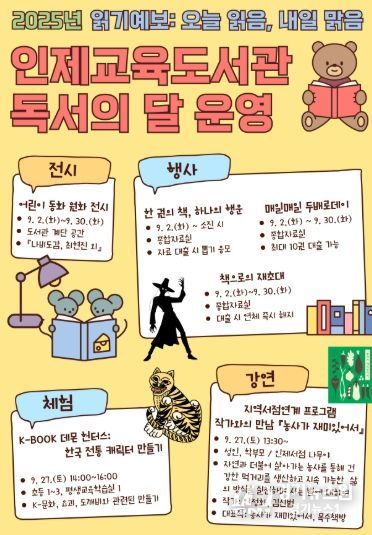 2025년 읽기예보: 오늘 읽음, 내일 맑음
인제교육도서관
독서의 달 운영
전시
어린이 동화 원화 전시
9. 2.(화)~9. 30.(화)
도서관 계단 공간
『나비도감, 최현진 외』
행사
한 권의 책, 하나의 행운
9. 2.(화) ~ 소진 시
종합자료실
자료 대출 시 뽑기 응모
매일매일 두배로데이
9. 2.(화) ~ 9. 30.(화)
종합자료실
최대 10권 대출 가능
책으로의 재초대
9. 2.(화)~9. 30.(화)
종합자료실
대출 시 연체 즉시 해지
체험
K-BOOK 데몬 헌터스:
한국 전통 캐릭터 만들기
9. 27.(토) 14:00~16:00
초등 1~3, 평생교육학습실 1
K-문화, 요괴, 도깨비와 관련된 만들기
강연
지역서점연계 프로그램
작가와의 만남 『농사가 재미있어서』
9. 27.(토) 13:30~
성인, 학부모 / 인제서점 나무야
자연과 더불어 살아가는 농사를 통해 건
강한 먹거리를 생산하고 지속 가능한 삶
의 방식
대표작: 농사가 재미있어서, 옥수책방